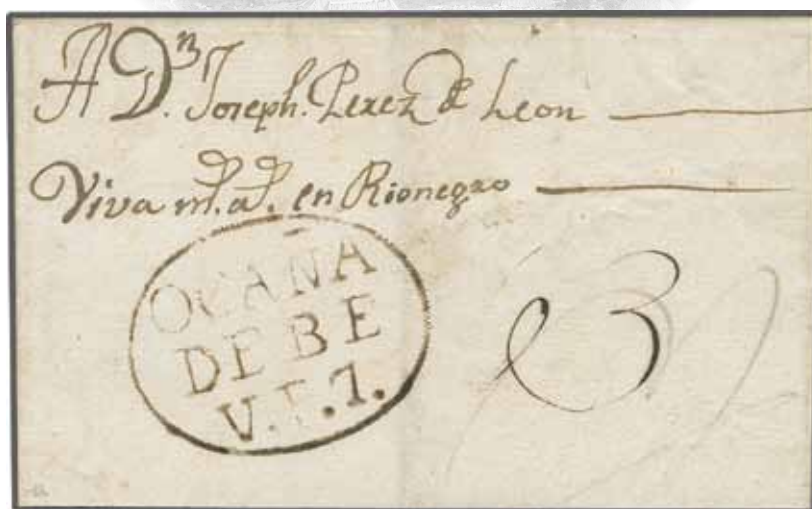 A Dⁿ. Joseph. Perez de Leon
Viva ms. as. en Rionegro
OCAÑA
DE BE
3